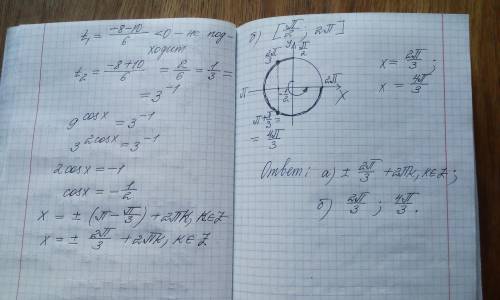 t₁ = (-8-10)/6 < 0 - не под-
ходит
t₂ = (-8+10)/6 = 2/6 = 1/3 =
= 3⁻¹
9^cosx = 3⁻¹
3^2cosx = 3⁻¹
2cosx = -1
cosx = -1/2
x = ± (π - π/3) + 2πk, k∈Z
x = ± 2π/3 + 2πk, k∈Z
б) [π/2; 2π]
y π/2
2π/3
π -1/2 2π x
π + π/3 =
= 4π/3
x = 2π/3;
x = 4π/3
Ответ: а) ± 2π/3 + 2πk, k∈Z;
б) 2π/3; 4π/3.